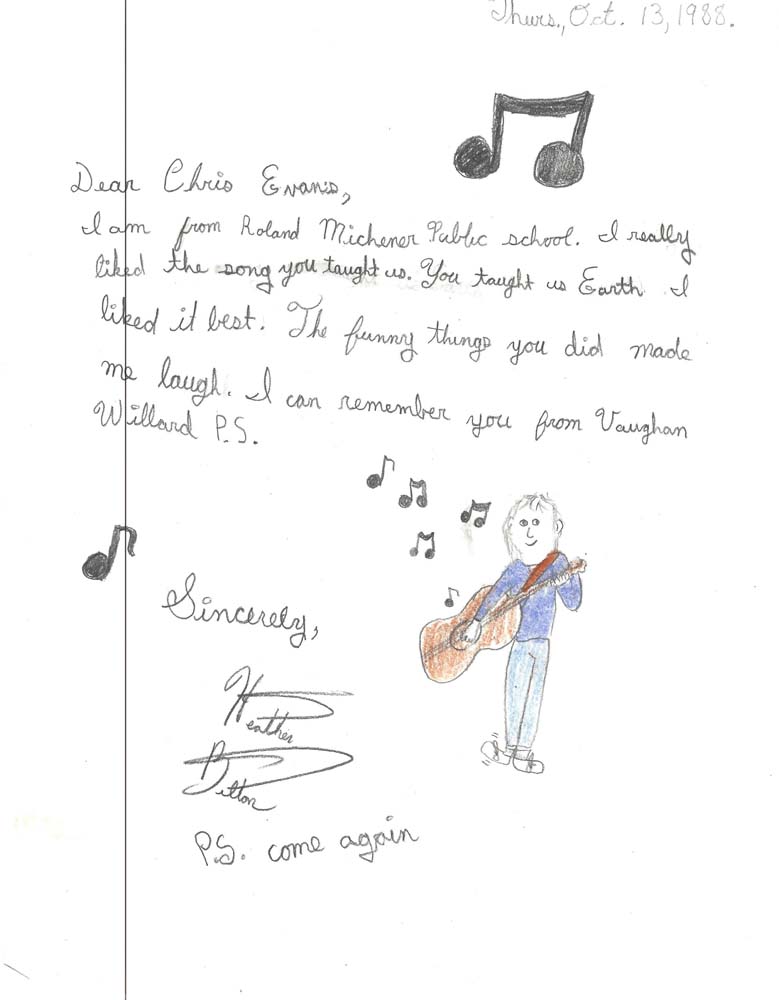 Thurs., Oct. 13, 1988.
Dear Chris Evans,
I am from Roland Michener Public school. I really
liked the song you taught us. You taught us Earth I
liked it best. The funny things you did made
me laugh. I can remember you from Vaughan
Willard P.S.
Sincerely,
Heather
Bitton
P.S. come again